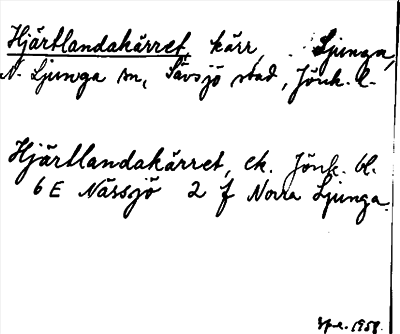 Hjärtlandakärret, kärr, Ljunga,
N. Ljunga sn, Sävsjö stad, Jönk. l.
Hjärtlandakärret, ek. Jönk. bl.
6 E Nässjö 2 f Norra Ljunga.
1958.